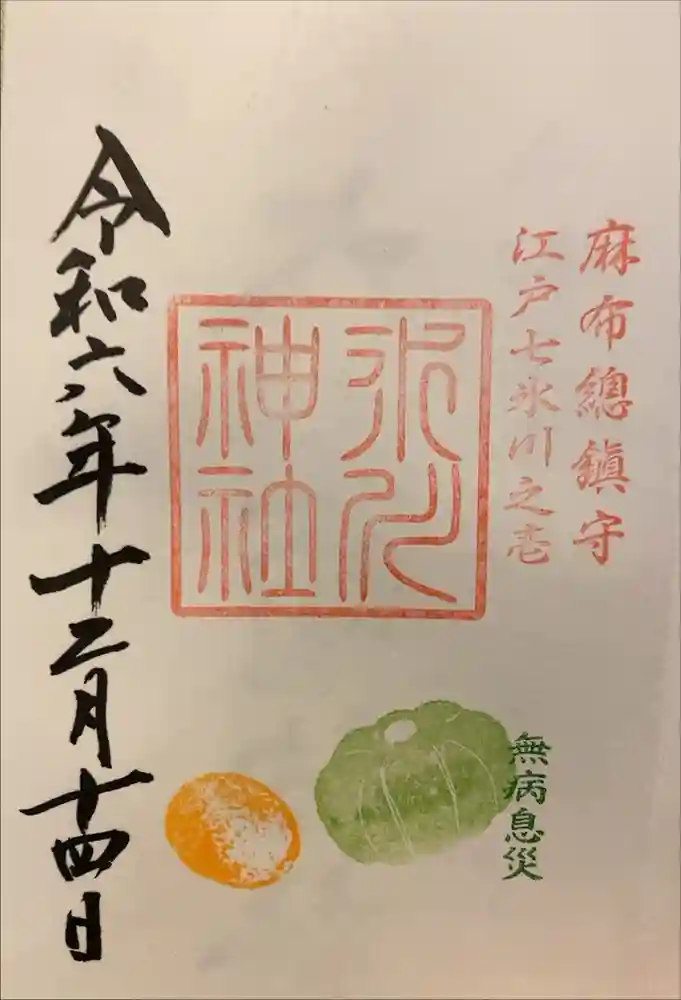 麻布總鎮守
江戸七氷川之壱
氷川
神社
無病息災
令和六年十二月十四日